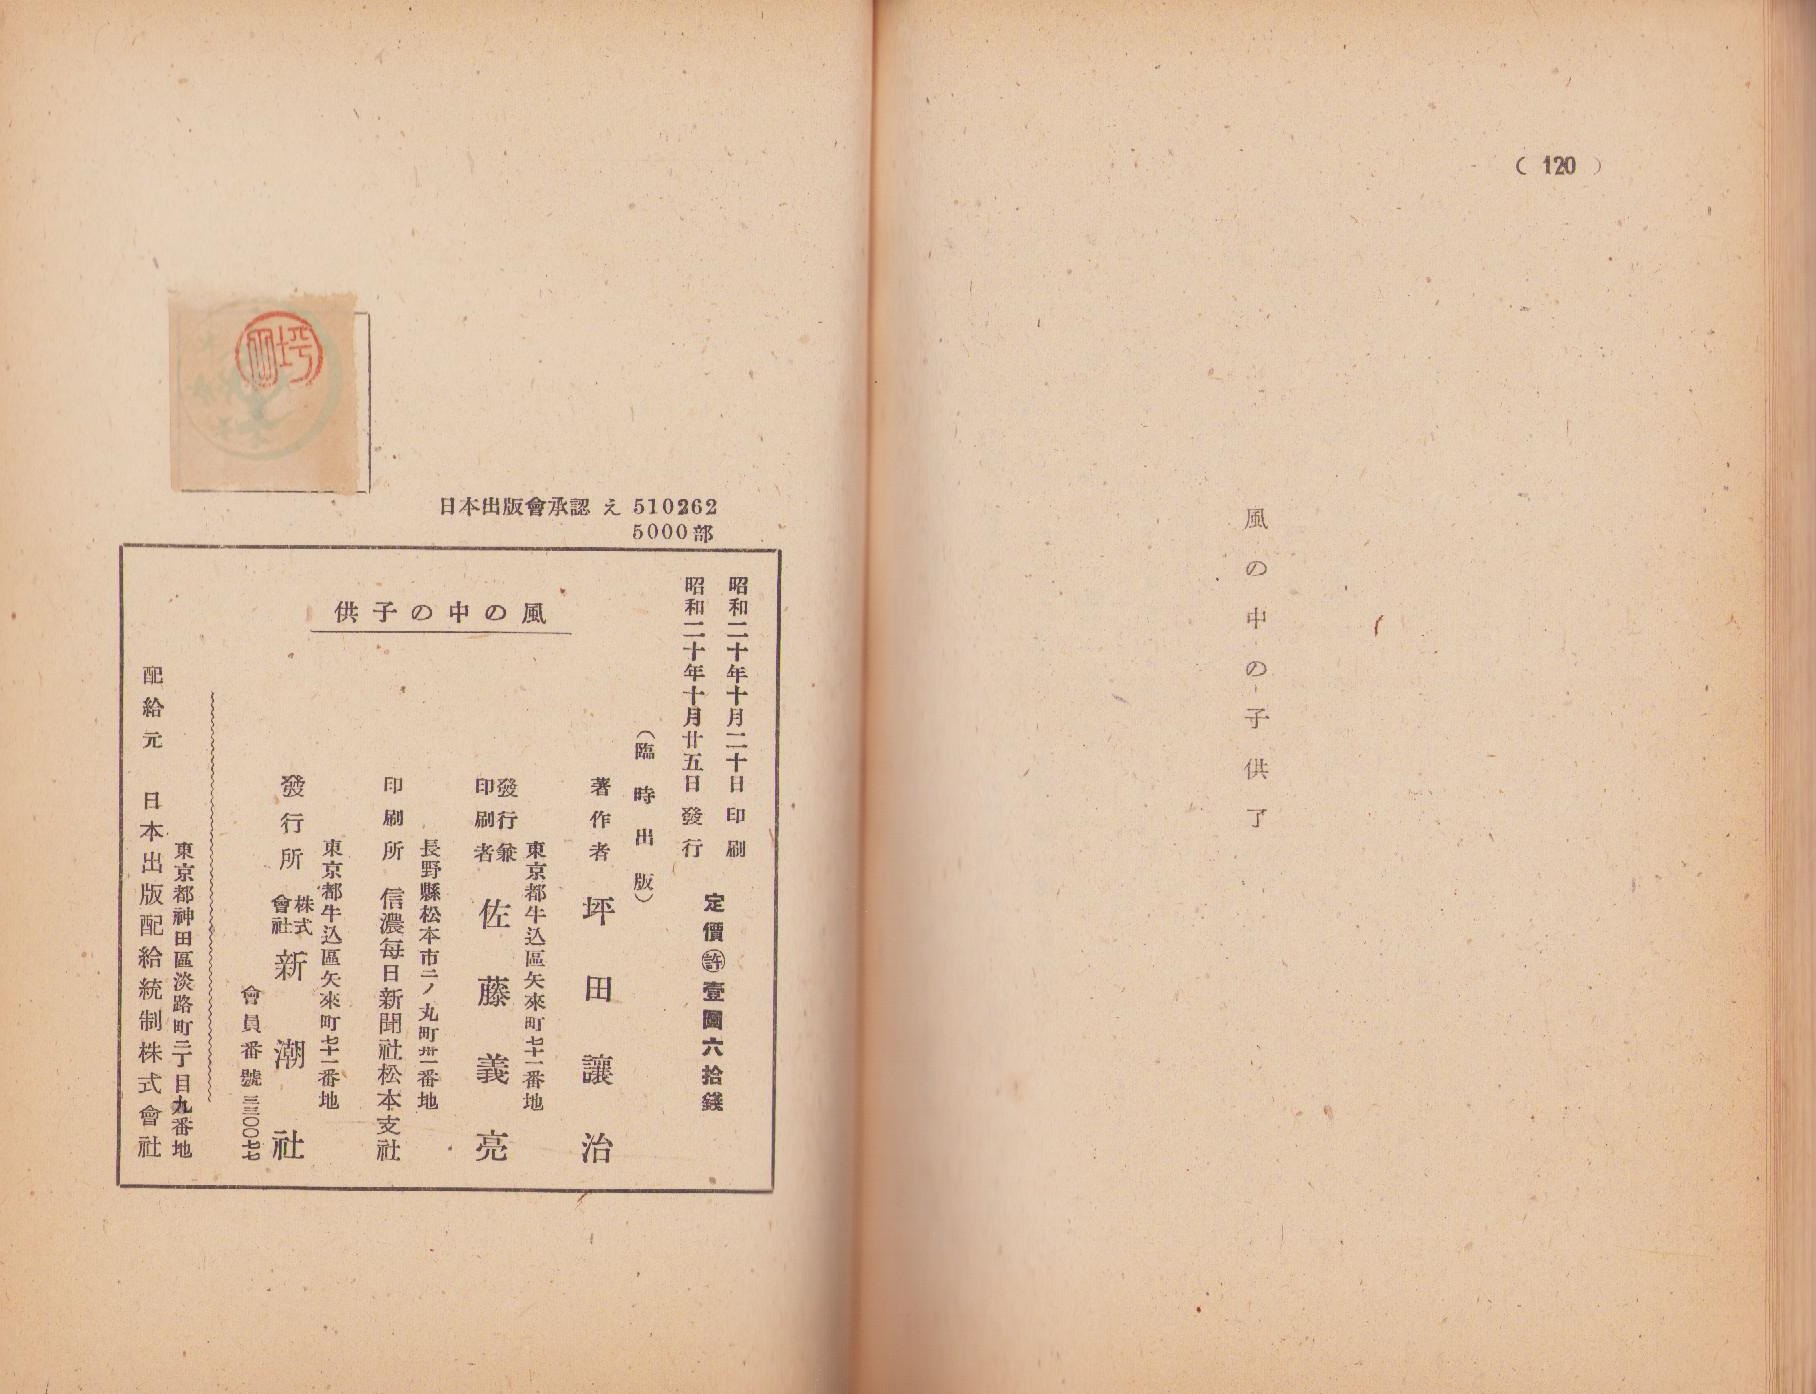 ( 120 )
風の中の子供了
坪田
日本出版會承認 え 510262
5000部
昭和二十年十月二十日印刷
昭和二十年十月廿五日發行
定價 ㊟壹圓六拾錢
(臨時出版)
風の中の子供
著作者 坪田讓治
東京都牛込區矢來町七十一番地
發行兼
印刷者 佐藤義亮
長野縣松本市二ノ丸町卅一番地
印刷所 信濃每日新聞社松本支社
東京都牛込區矢來町七十一番地
發行所 株式會社 新潮社
會員番號 三三〇〇七七
東京都神田區淡路町二丁目九番地
配給元 日本出版配給統制株式會社